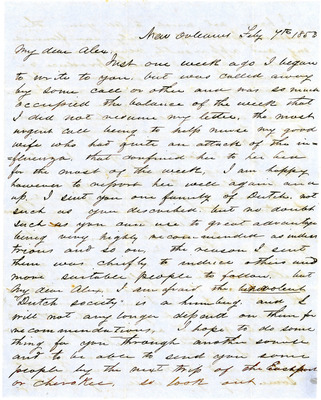 New Orleans Feby 7th 1853
My dear Alex.
Just one week ago I began
to write to you, but was called away
by some call or other and was so much
occupied the balance of the week that
I did not resume my letter, the most
urgent call being to help nurse my good
wife who has quite an attack of the in-
fluenza, that confined her to her bed
for the most of the week. I am happy
however to report her well again and
up. I sent you one family of Dutch, not
such as you described, but no doubt
such as you can use to great advantage
being very highly recommended as indus-
trious and sober. the reason I sent
them was chiefly to induce others and
more suitable people to follow, but
My dear Alex, I am afraid the
"Dutch society" is a humbug, and I
will not any longer depend on them for
recommendations. I hope to do some
thing for you through another source
and to be able to send you some
people by the next trip of the Eastport
or Cherokee, so look out